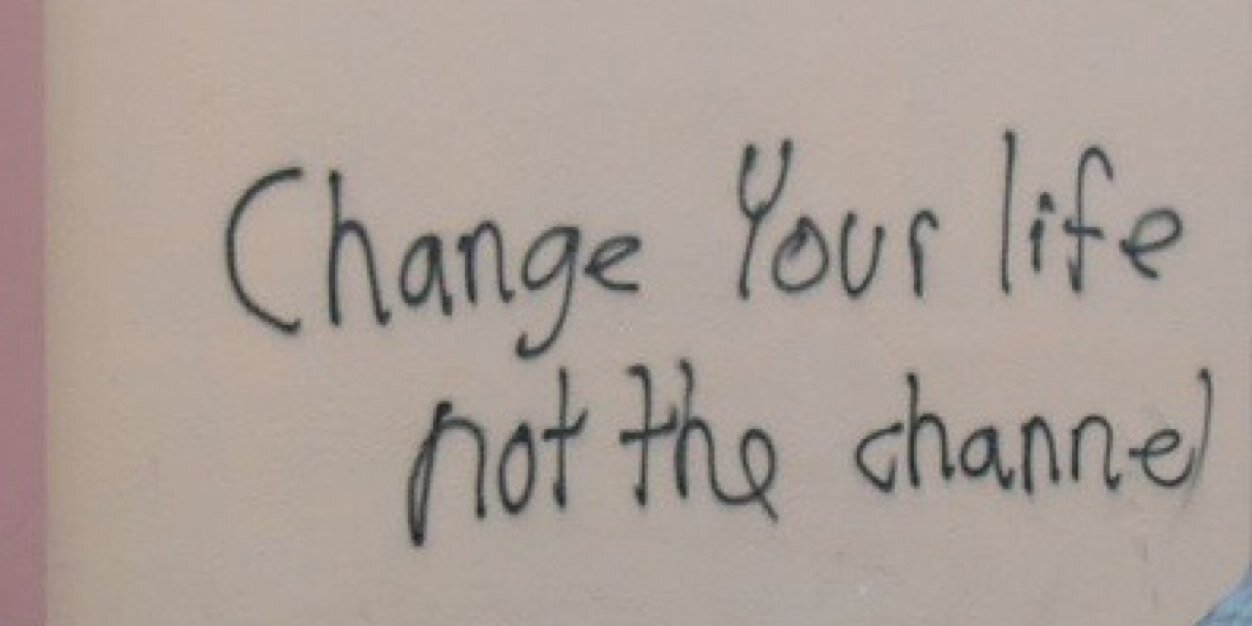 Change Your life
not the channel